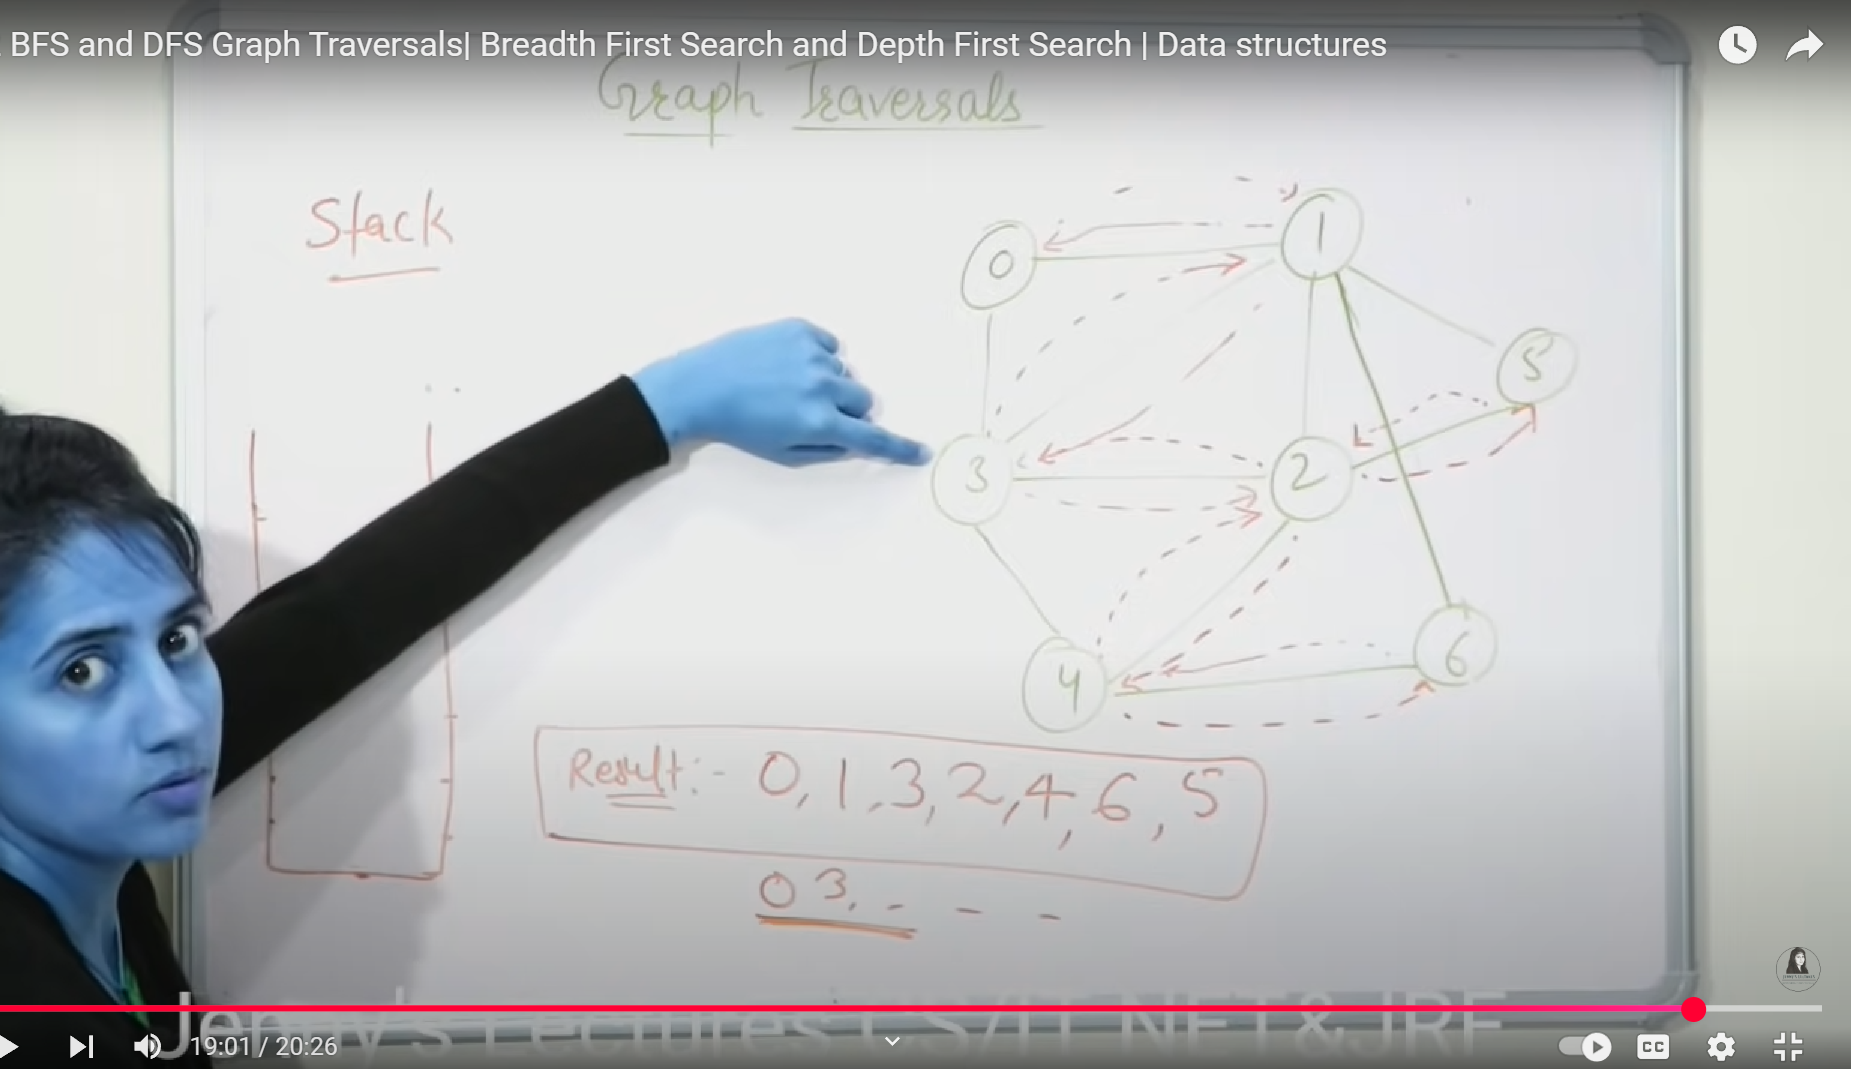 BFS and DFS Graph Traversals| Breadth First Search and Depth First Search | Data structures
Graph Traversals
Stack
0
1
5
3
2
4
6
Result:- 0, 1, 3, 2, 4, 6, 5
0 3, - - -
Jenny's Lectures CS/IT NET&JRF
19:01 / 20:26
CC